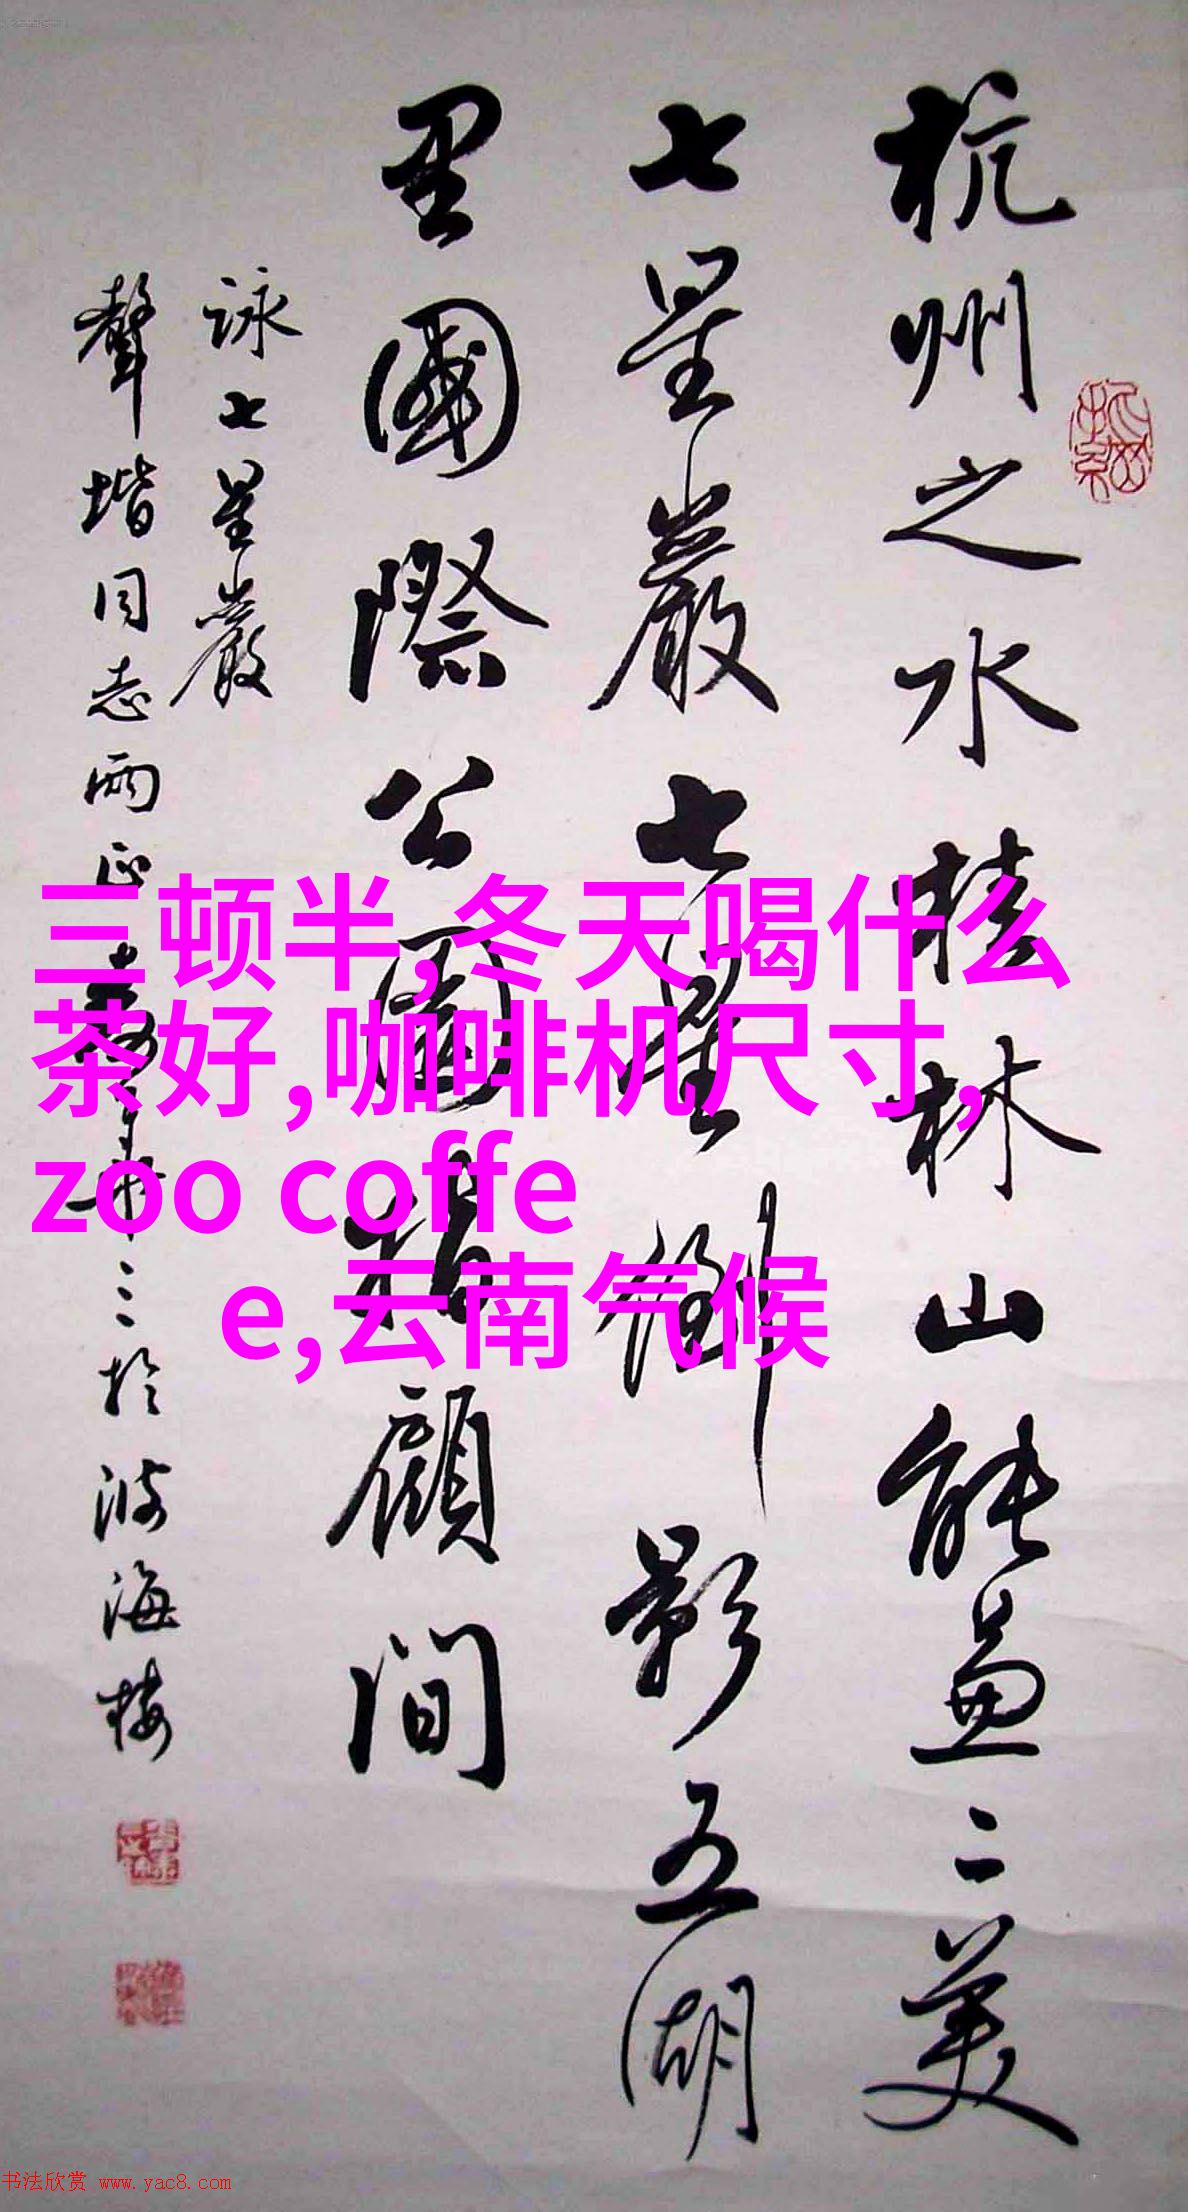 杭州之水桂林山能兼二美
七星巖七星御影五湖
里國際公園指顧間
詠七星巖
聲堦同志兩正
三於波海楼
三顿半,冬天喝什么
茶好,咖啡机尺寸,
zoo coffe
e,云南气候
书法欣赏 www.yac8.com